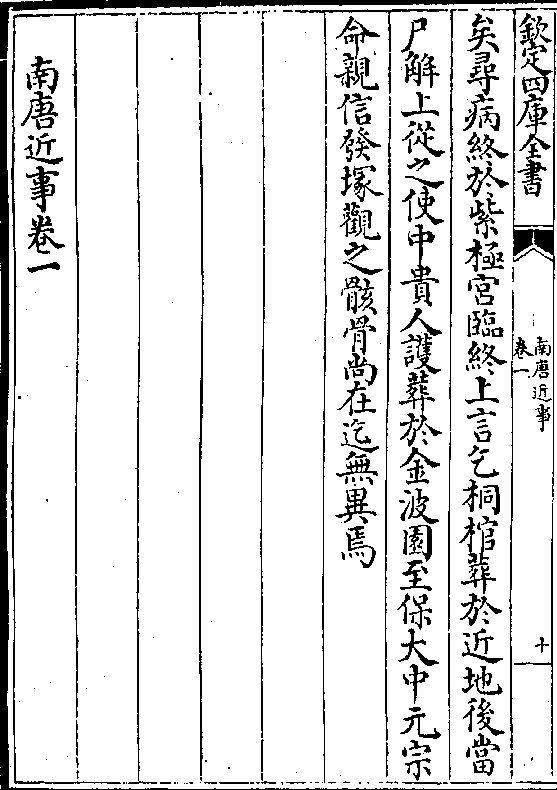 欽定四庫全書
南唐近事
卷一
十
矣尋病終於紫極宮臨終上言乞桐棺葬於近地後當
尸解上從之使中貴人護葬於金波園至保大中元宗
命親信發塚觀之骸骨尚在迄無異焉
南唐近事卷一